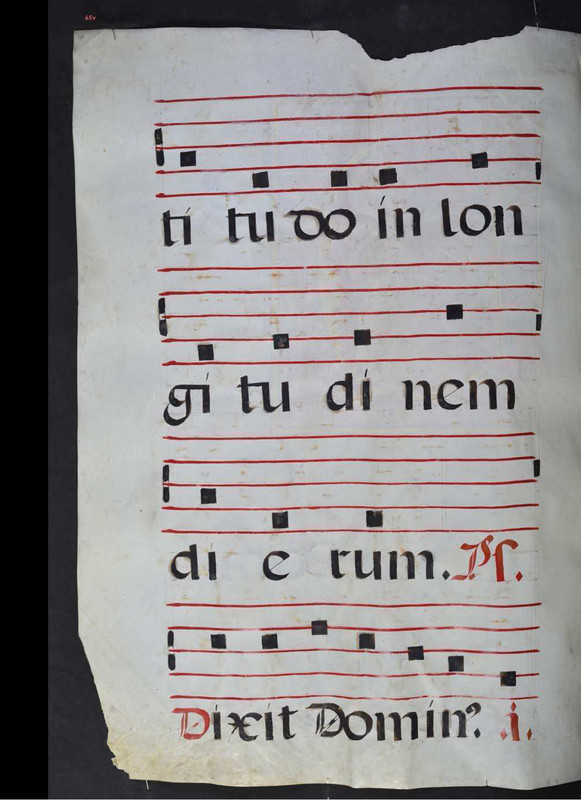 65v
ti tu do in lon
gi tu di nem
di e rum. Ps.
Dixit Domin⁹ .i.